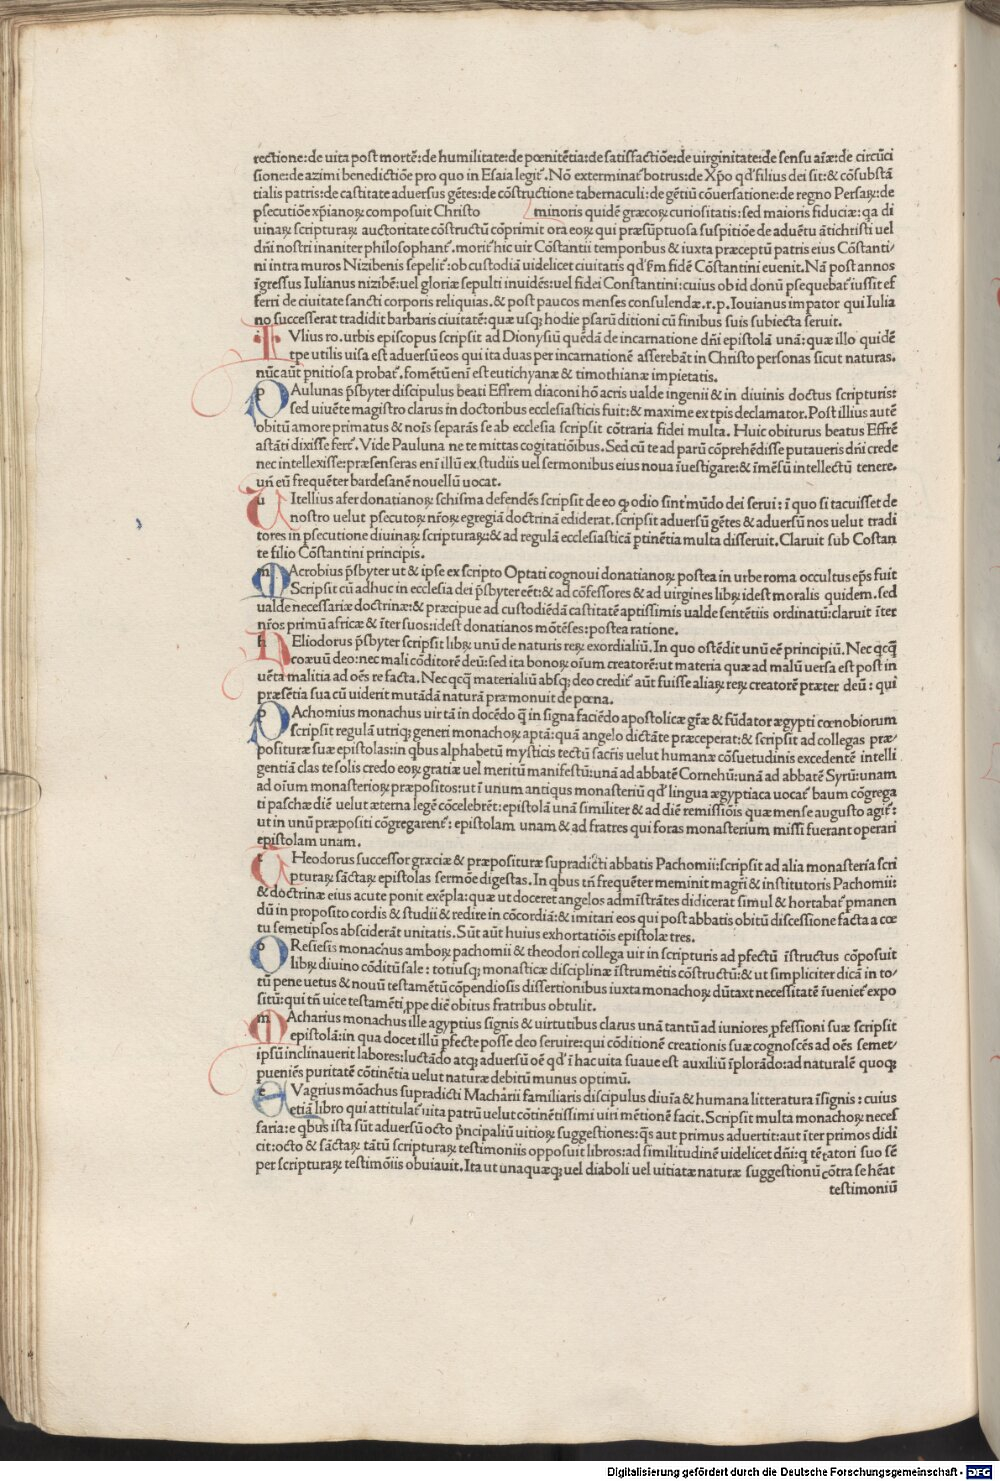 rectione:de uita post mortē:de humilitate:de pœnitētia:de satisfactiōe:de uirginitate:de sensu aīæ:de circūci
sione:de azimi benedictiōe pro quo in Esaia legit᷑. Nō exterminat᷑ botrus:de Xp̄o qđ filius dei sit:& cōsubstā
tialis patris:de castitate aduersus gētes:de cōstructione tabernaculi:de gētiū cōuersatione:de regno Persaꝝ:de
psecutiōe xp̄ianoꝝ composuit Christo minoris quidē græcoꝝ curiositatis:sed maioris fiduciæ:qa di
uinaꝝ scripturaꝝ auctoritate cōstructū cōprimit ora eoꝝ qui præsūptuosa suspitiōe de aduētu ātichristi uel
dn̄i nostri inaniter philosophant᷑. morit᷑ hic uir Cōstantii temporibus & iuxta præceptū patris eius Cōstanti/
ni intra muros Nizibenis sepelit᷑:ob custodiā uidelicet ciuitatis qđ fm fidē Cōstantini euenit. Nā post annos
īgressus Iulianus nizibē:uel gloriæ sepulti inuidēs:uel fidei Constantini:cuius ob id donū psequebat᷑ iussit ef
ferri de ciuitate sancti corporis reliquias. & post paucos menses consulendæ.r.p. Iouianus impator qui Iulia
no successerat tradidit barbaris ciuitatē:quæ usq; hodie psarū ditioni cū finibus suis subiecta seruit.
i Vlius ro. urbis episcopus scripsit ad Dionysiū quēdā de incarnatione dn̄i epistolā unā:quæ illo quidē
tpe utilis uisa est aduersū eos qui ita duas per incarnationē asserebāt in Christo personas sicut naturas.
nūc aūt pnitiosa probat᷑. fomētū enī est eutichyanæ & timothianæ impietatis.
p Aulunas p̄sbyter discipulus beati Effrem diaconi hō acris ualde ingenii & in diuinis doctus scripturis:
sed uiuēte magistro clarus in doctoribus ecclesiasticis fuit:& maxime ex tpis declamator. Post illius autē
obitū amore primatus & noīs separās se ab ecclesia scripsit cōtraria fidei multa. Huic obiturus beatus Effrē
astāti dixisse fert᷑. Vide Pauluna ne te mittas cogitatiōibus. Sed cū te ad parū cōprehēdisse putaueris dn̄i crede
nec intellexisse:præsenseras enī illū ex studiis uel sermonibus eius noua īuestigare:& īmēsū intellectū tenere.
uñ eū frequēter bardesanē nouellū uocat.
u Itellius afer donatianoꝝ schisma defendēs scripsit de eo ꝙ odio sint mūdo dei serui: ī quo si tacuisset de
nostro uelut psecutoꝝ nr̄oꝝ egregiā doctrinā ediderat. scripsit aduersū gētes & aduersū nos uelut tradi
tores in psecutione diuinaꝝ scripturaꝝ:& ad regulā ecclesiasticā ptinētia multa disseruit. Claruit sub Costan
te filio Cōstantini principis.
m Acrobius p̄sbyter ut & ipse ex scripto Optati cognoui donatianoꝝ postea in urbe roma occultus ep̄s fuit
Scripsit cū adhuc in ecclesia dei p̄sbyter eēt:& ad cōfessores & ad uirgines libꝝ idest moralis quidem. sed
ualde necessariæ doctrinæ:& præcipue ad custodiēdā castitatē aptissimis ualde sentētiis ordinatū:claruit īter
nr̄os primū africæ & īter suos:idest donatianos mōtēses:postea ratione.
h Eliodorus p̄sbyter scripsit libꝝ unū de naturis reꝝ exordialiū. In quo ostēdit unū eē principiū. Nec qcq̄
coæuū deo:nec mali cōditorē deū:sed ita bonoꝝ oīum creatorē:ut materia quæ ad malū uersa est post in
uēta malitia ad oēs re facta. Nec qcq̄ materialiū absq; deo credit᷑ aūt fuisse aliaꝝ reꝝ creatorē præter deū: qui
præsētia sua cū uiderit mutādā naturā præmonuit de pœna.
p Achomius monachus uir tā in docēdo q̄ in signa faciēdo apostolicæ gr̄æ & fūdator ægypti cœnobiorum
scripsit regulā utriq; generi monachoꝝ aptā:quā angelo dictāte præceperat:& scripsit ad collegas præ/
posituræ suæ epistolas:in qbus alphabetū mysticis tectū sacr̄is uelut humanæ cōsuetudinis excedentē intelli
gentiā clas te solis credo eoꝝ gratiæ uel meritū manifestū:unā ad abbatē Cornehū:unā ad abbatē Syrū:unam
ad oīum monasterioꝝ præpositos:ut ī unum antiqus monasteriū qđ lingua ægyptiaca uocat᷑ baum cōgrega
ti paschæ diē uelut æterna legē cōcelebrēt:epistolā unā similiter & ad diē remissiōis quæ mense augusto agit᷑:
ut in unū præpositi cōgregarent᷑: epistolam unam & ad fratres qui foras monasterium missi fuerant operari
epistolam unam.
t Heodorus successor græciæ & præposituræ supradicti abbatis Pachomii:scripsit ad alia monasteria scri
pturaꝝ sāctaꝝ epistolas sermōe digestas. In qbus tn̄ frequēter meminit magr̄i & institutoris Pachomii:
& doctrinæ eius acute ponit exēpla:quæ ut doceret angelos admīstrātes didicerat simul & hortabat᷑ pmanen
dū in proposito cordis & studii & redire in cōcordiā:& imitari eos qui post abbatis obitū discessione facta a cœ
tu semetipsos absciderāt unitatis. Sūt aūt huius exhortatiōis epistolæ tres.
o Resiesis monachus amboꝝ pachomii & theodori collega uir in scripturis ad pfectū īstructus cōposuit
libꝝ diuino cōditū sale: totiusq; monasticæ disciplinæ īstrumētis cōstructū:& ut simpliciter dicā in to/
tū pene uetus & nouū testamētū cōpendiosis dissertionibus iuxta monachoꝝ dūtaxt necessitatē īueniet᷑ expo
sitū:qui tn̄ uice testamēti ꝓpe diē obitus fratribus obtulit.
m Acharius monachus ille ægyptius signis & uirtutibus clarus unā tantū ad iuniores ꝓfessioni suæ scripsit
epistolā:in qua docet illū pfecte posse deo seruire:qui cōditionē creationis suæ cognoscēs ad oēs semet/
ipsū inclinauerit labores:luctādo atq; aduersū oē qđ ī hac uita suaue est auxiliū īplorādo:ad naturalē quoq;
pueniēs puritatē cōtinētia uelut naturæ debitū munus optimū.
e Vagrius mōachus supradicti Macharii familiaris discipulus diuīa & humana litteratura īsignis: cuius
etiā libro qui attitulat᷑ uita patrū uelut cōtinētissimi uiri mētionē facit. Scripsit multa monachoꝝ necef
saria:e qbus ista sūt aduersū octo p̄ncipaliū uitioꝝ suggestiones:q̄s aut primus aduertit:aut īter primos didi
cit:octo & sāctaꝝ tātū scripturaꝝ testimoniis opposuit libros:ad similitudinē uidelicet dn̄i:q tētatori suo sē
per scripturaꝝ testimōiis obuiauit. Ita ut unaquæq; uel diaboli uel uitiatæ naturæ suggestionū cōtra se hēat
testimoniū
Digitalisierung gefördert durch die Deutsche Forschungsgemeinschaft - DFG